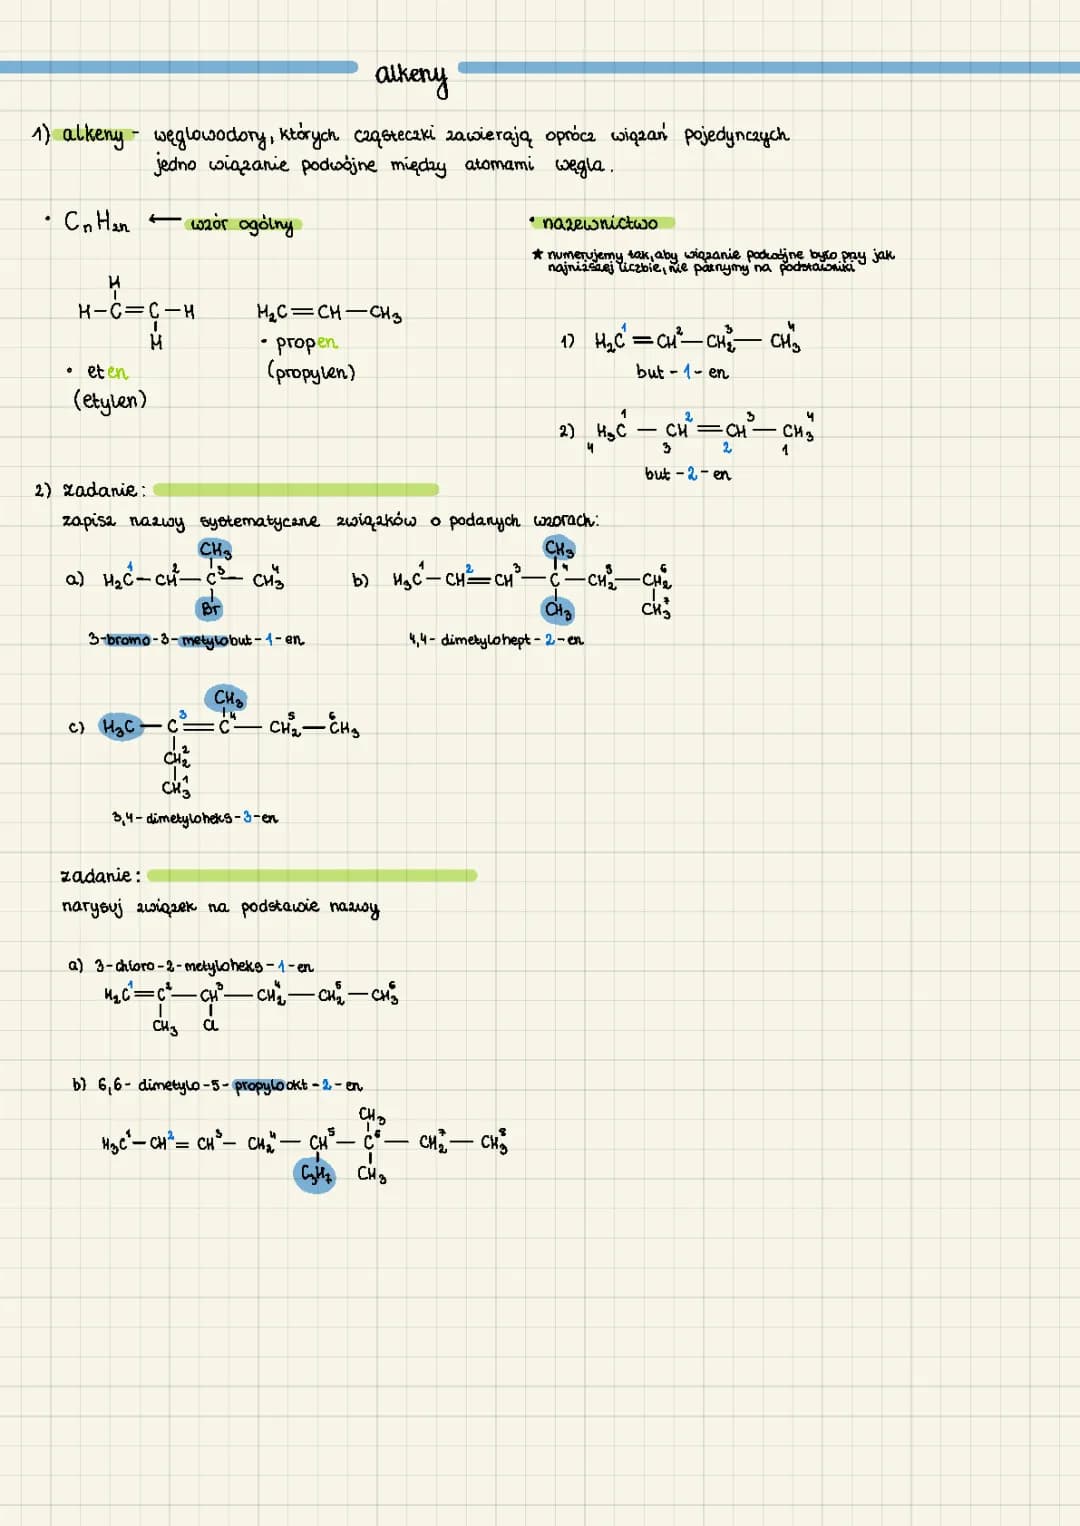 alkeny
1) alkeny - węglowodory, których cząsteczki zawierają oprócz wiązań pojedynczych
jedno wiązanie podwójne między atomami węgla.
• CnH2n ← wzór ogólny
H
H-C=C-H
H
• eten
(etylen)
H2C=CH-CH3
• propen
(propylen)
• nazewnictwo
★ numerujemy tak, aby wiązanie podwójne było przy jak
najniższej liczbie, nie patrzymy na podstawniki
1) H2C¹=CH²-CH2³-CH3⁴
but-1-en
1 2 3 4
2) H3C-CH=CH-CH3
4 3 2 1
but-2-en
2) zadanie:
zapisz nazwy systematyczne związków o podanych wzorach:
CH3
a) H2C¹-CH²-C³-CH3⁴
Br
3-bromo-3-metylobut-1-en
CH3
b) H3C¹-CH²=CH³-C⁴-CH2⁵-CH2⁶
CH3 CH3⁷
4,4-dimetylohept-2-en
CH3
c) H3C-C³=C⁴-CH2⁵-CH3⁶
CH2²
CH3¹
3,4-dimetyloheks-3-en
zadanie:
narysuj związek na podstawie nazwy
a) 3-chloro-2-metyloheks-1-en
H2C¹=C²-CH³-CH2⁴-CH2⁵-CH3⁶
CH3 Cl
b) 6,6-dimetylo-5-propylookt-2-en
CH3
H3C¹-CH²=CH³-CH2⁴-CH⁵-C⁶-CH2⁷-CH3⁸
C3H7 CH3